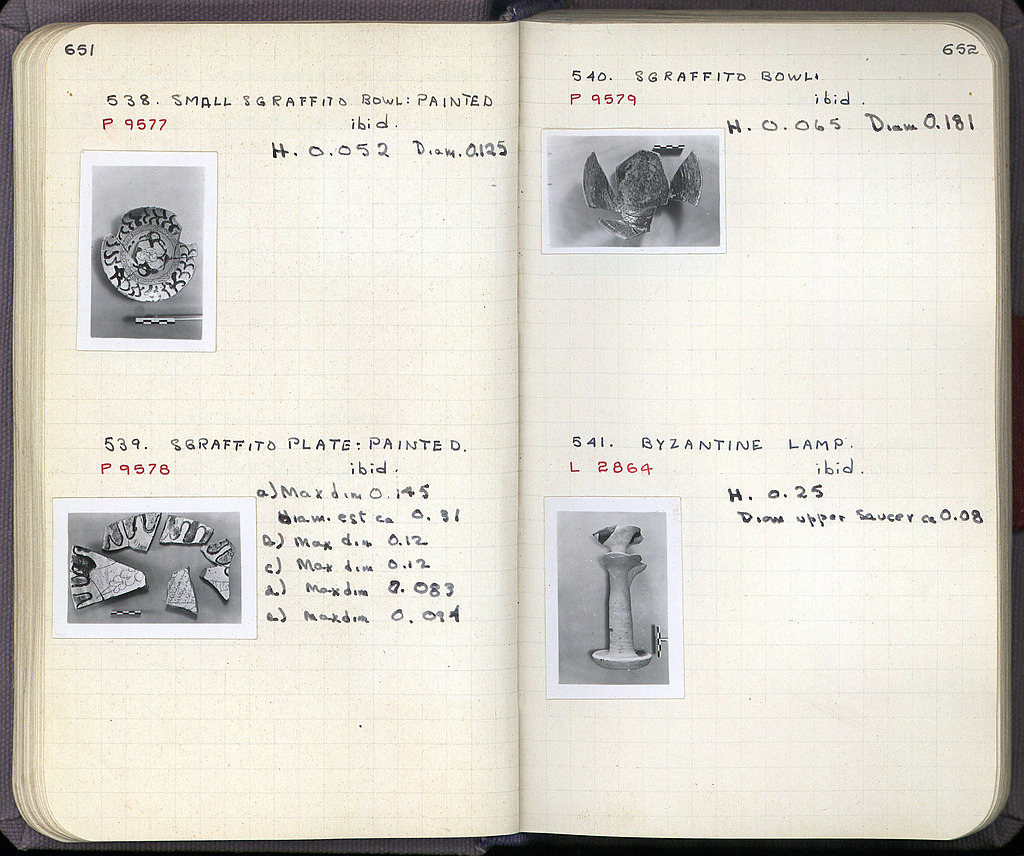 651
538. SMALL SGRAFFITO BOWL: PAINTED
P 9577 ibid.
H. 0.052 Diam. 0.125
539. SGRAFFITO PLATE: PAINTED.
P 9578 ibid.
a) Max dim 0.145
Diam. est ca 0.31
b) Max dim 0.12
c) Max dim 0.12
d) Max dim 0.083
e) Max dim 0.094
652
540. SGRAFFITO BOWL.
P 9579 ibid.
H. 0.065 Diam 0.181
541. BYZANTINE LAMP.
L 2864 ibid.
H. 0.25
Diam upper saucer ca 0.08